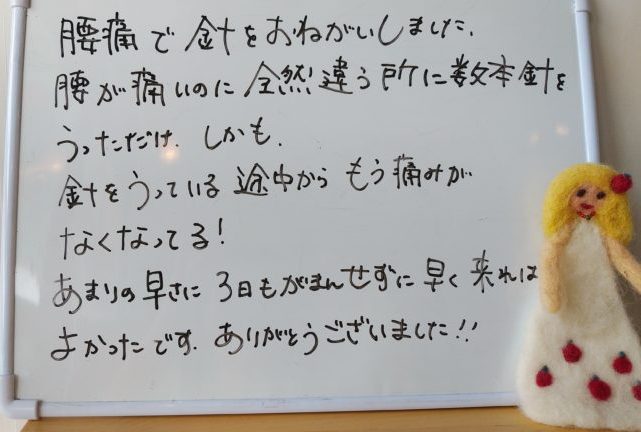 腰痛で針をおねがいしました.
腰が痛いのに全然違う所に数本針を
うっただけ. しかも.
針をうっている途中からもう痛みが
なくなってる!
あまりの早さに3日もがまんせずに早く来れば
よかったです. ありがとうございました!!